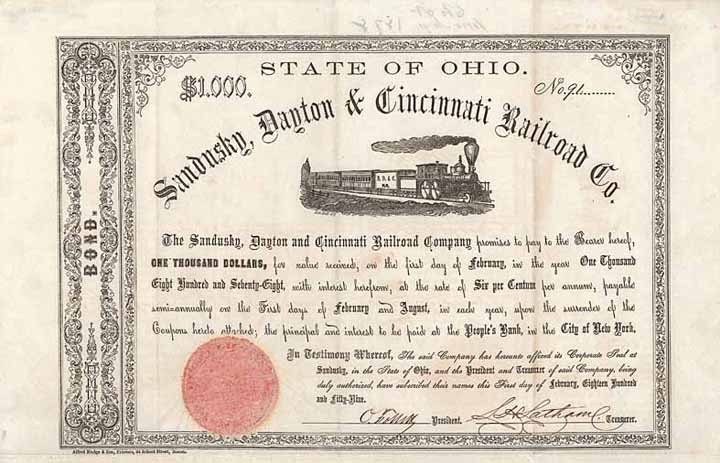 STATE OF OHIO.
$1.000.
No. 91
Sandusky, Dayton & Cincinnati Railroad Co.
BOND.
The Sandusky, Dayton and Cincinnati Railroad Company promises to pay to the Bearer hereof,
ONE THOUSAND DOLLARS, for value received, on the first day of February, in the year One Thousand
Eight Hundred and Seventy-Eight, with interest herefrom, at the rate of Six per Centum per annum, payable
semi-annually on the First days of February and August, in each year, upon the surrender of the
Coupons hereto attached; the principal and interest to be paid at the People's Bank, in the City of New York.
In Testimony Whereof, The said Company has hereunto affixed its Corporate Seal at
Sandusky, in the State of Ohio, and the President and Treasurer of said Company, being
duly authorized, have subscribed their names this First day of February, Eighteen Hundred
and Fifty-Nine.
President.
Treasurer.
Alfred Mudge & Son, Printers, 34 School Street, Boston.